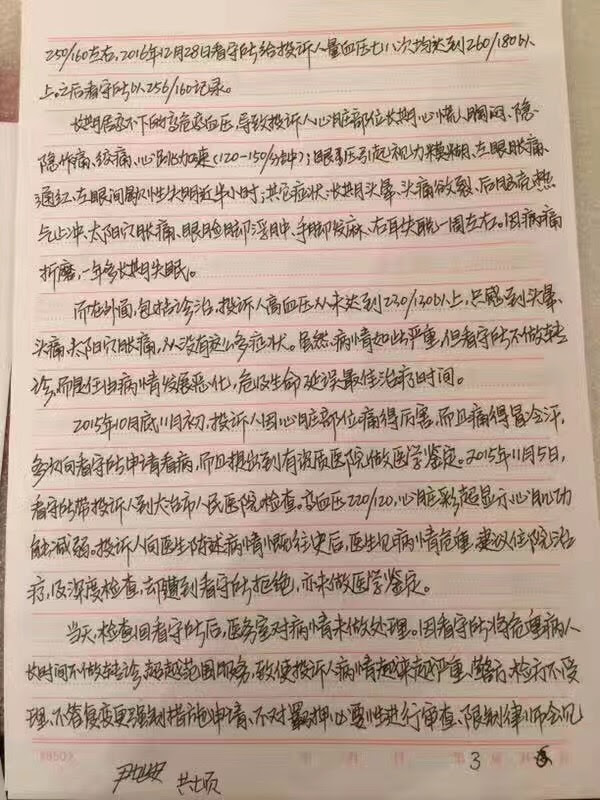 250/160左右,2016年12月28日看守所给投诉人量血压七八次均达到260/180以
上。之后看守所以256/160记录。
长期居高不下的高危高血压,导致投诉人心脏部位长期心慌、胸闷、隐
隐作痛、绞痛,心跳加速(120-150/分钟);眼压引起视力模糊、左眼胀痛、
通红、左眼间歇性失明近半小时;其它症状,长期头晕、头痛欲裂、后脑亢热
气上冲、太阳穴胀痛、眼脸脚浮肿、手脚发麻、右耳失聪一周左右。因病痛
折磨,一年多长期失眠。
而在外面,包括诊治,投诉人高血压从未达到230/130以上,只感到头晕、
头痛、太阳穴胀痛,从没有这么多症状。虽然病情如此严重,但看守所不做转
诊,而是任由病情发展恶化,危及生命延误最佳治疗时间。
2015年10月底11月初,投诉人因心脏部位痛得厉害,而且痛得冒冷汗,
多次向看守所申请看病,而且提出到有资质医院做医学鉴定。2015年11月5日,
看守所带投诉人到大冶市人民医院检查。高血压220/120,心脏彩超显示心肌功
能减弱。投诉人向医生陈述病情,既往史后,医生见病情危重,建议住院治
疗,及深度检查,却遭到看守所拒绝,亦未做医学鉴定。
当天,检查回看守所后,医务室对病情未做处理。因看守所将危重病人
长时间不做转诊,超越范围服务,致使投诉人病情越来越严重。警方、检方不受
理、不答复变更强制措施申请、不对羁押必要性进行审查、限制律师会见
第 3 页
共七项